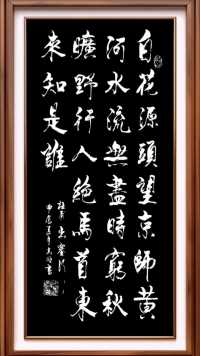 白花源頭望京師黃
河水流無盡時窮秋
曠野行人絕馬首東
來知是誰